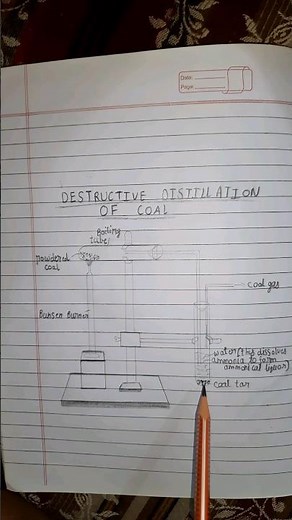 Date:
Page:
DESTRUCTIVE DISTILLATION
OF COAL
Boiling
tube
powdered
coal
coal gas
Bunsen Burner
water (this dissolves
ammonia to form
ammonical liquor)
Coal tar